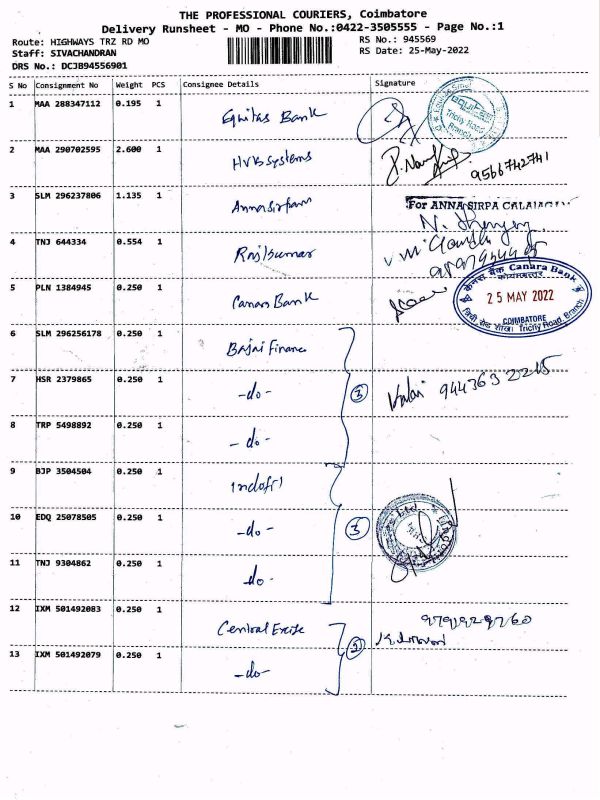 THE PROFESSIONAL COURIERS, Coimbatore
Delivery Runsheet - MO - Phone No.:0422-3505555 - Page No.:1
Route: HIGHWAYS TRZ RD MO
RS No.: 945569
Staff: SIVACHANDRAN
RS Date: 25-May-2022
DRS No.: DCJB94556901
S No Consignment No Weight PCS Consignee Details Signature
1 MAA 288347112 0.195 1 Equitas Bank
Trichy Road Branch
2 MAA 290702595 2.600 1 HVB systems
9566742741
3 SLM 296237806 1.135 1 Annasirpam
For ANNA SIRPA
4 TNJ 644334 0.554 1 Rajkumar
5 PLN 1384945 0.250 1 Canara Bank
केनरा बैंक Canara Bank
25 MAY 2022
COIMBATORE
Trichy Road, Branch
6 SLM 296256178 0.250 1 Bajaj Finance
7 HSR 2379865 0.250 1 -do- 3 Kalai
8 TRP 5498892 0.250 1 -do-
9 BJP 3504504 0.250 1 Indofil
10 EDQ 25078505 0.250 1 -do- 3
Ltd
11 TNJ 9304862 0.250 1 -do-
12 IXM 501492083 0.250 1 Central Excise
2
13 IXM 501492079 0.250 1 -do-